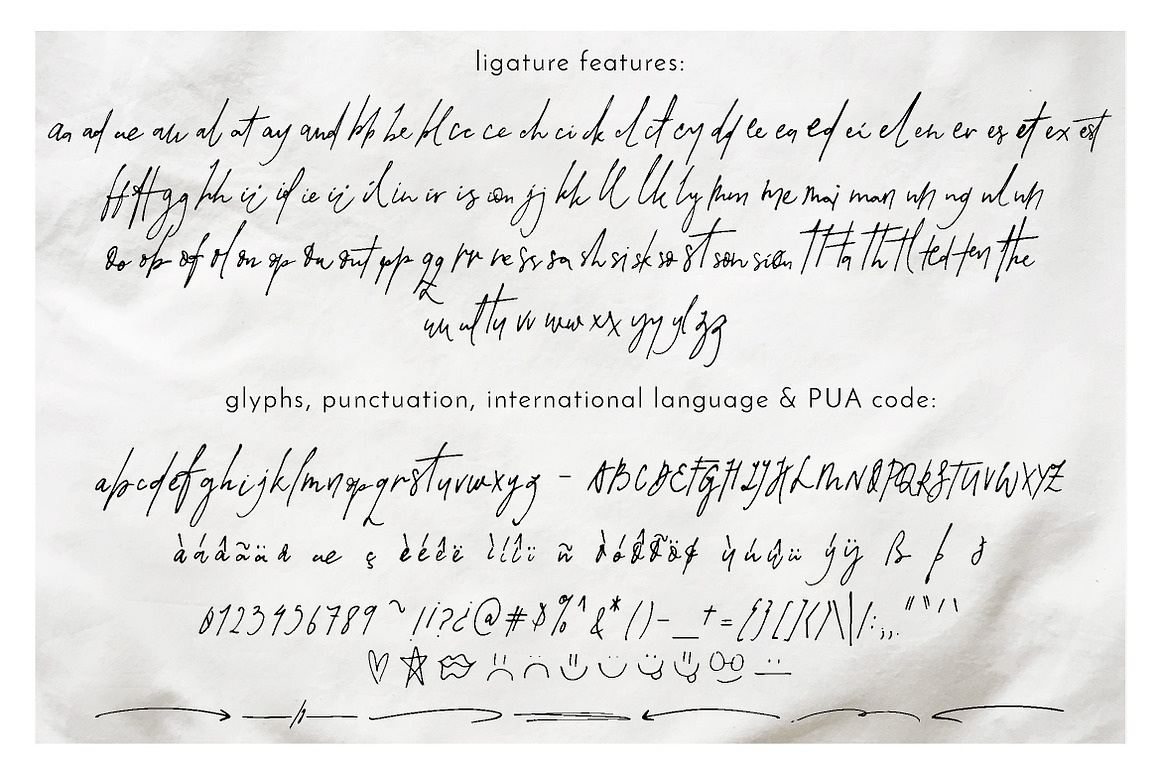 ligature features:
aa ad ae au al at ay and bb be bl cc ce ch ci ck cl ct cy dd ee ea ed ei el en er es et ex est
ff fft gg hh ii if ie ij il in ir is ion jj kk ll lk ly mm me mai man nn ng nl nh
oo ob of ol on op ou out pp qq rr re ss sa sh si sk so st son sion tt ta th tl ted ten the
uu ul tu vv ww xx yy yl zz
glyphs, punctuation, international language & PUA code:
abcdefghijklmnopqrstuvwxyz - ABCDEFGHIJKLMNOPQRSTUVWXYZ
àáâãäå ae ç èéêë ìíîï ñ òóôõöø ùúûü ýÿ ß þ
0123456789 ~ !¡?¿@#$%^&*()-_+={}[]<>/\|/:;,.